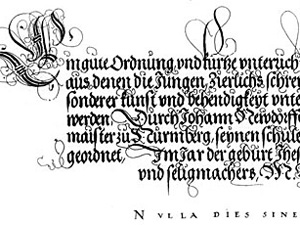 Ein gute Ordnung, vnd kurtze vnterricht
aus denen die Jungen, Zierlichs schre
sonderer kunst vnd behendigkeyt vnte
werden. Durch Johann Newdorffe
maister zu Nürmberg, seynen schule
geordnet, Im Jar der geburt Jhe
vnd seligmachers, M.
NVLLA DIES SINE